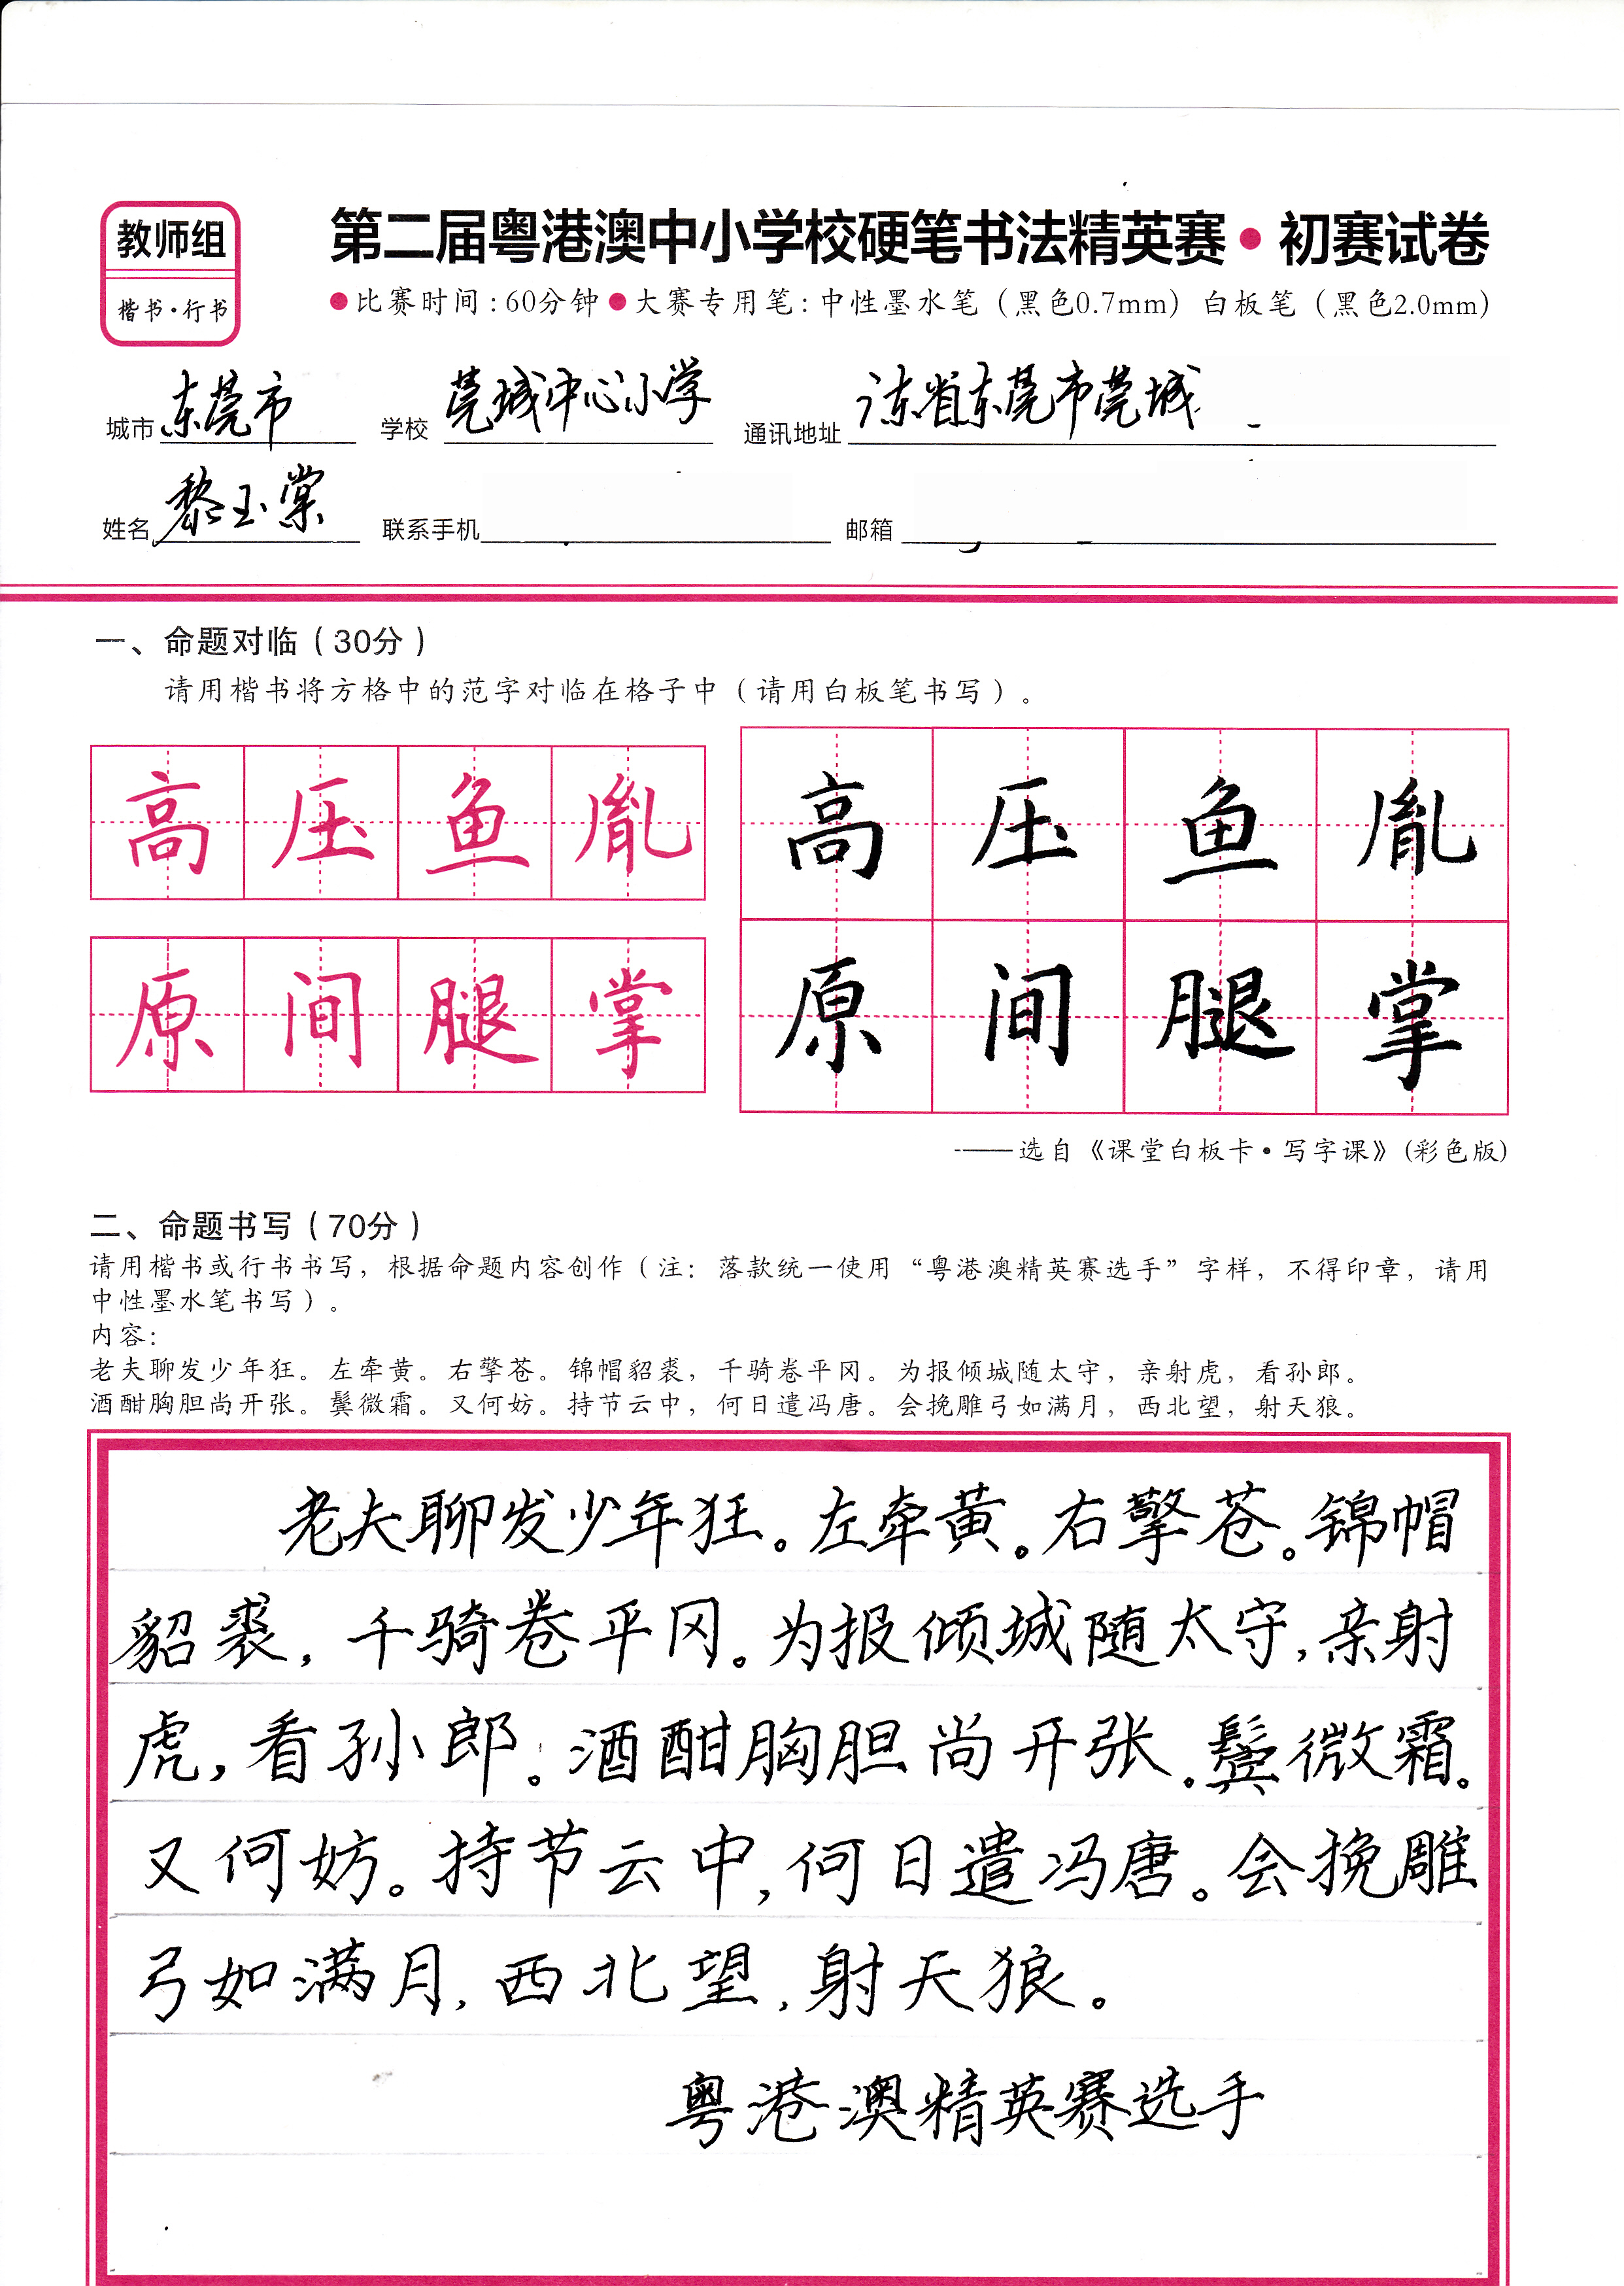 教师组
楷书·行书
第二届粤港澳中小学校硬笔书法精英赛●初赛试卷
●比赛时间:60分钟●大赛专用笔:中性墨水笔（黑色0.7mm）白板笔（黑色2.0mm）
城市 东莞市 学校 莞城中心小学 通讯地址 广东省东莞市莞城
姓名 黎玉棠 联系手机 邮箱
一、命题对临（30分）
请用楷书将方格中的范字对临在格子中（请用白板笔书写）。
高压鱼胤 高压鱼胤
原间腿掌 原间腿掌
——选自《课堂白板卡·写字课》(彩色版)
二、命题书写（70分）
请用楷书或行书书写，根据命题内容创作（注：落款统一使用“粤港澳精英赛选手”字样，不得印章，请用
中性墨水笔书写）。
内容：
老夫聊发少年狂。左牵黄。右擎苍。锦帽貂裘，千骑卷平冈。为报倾城随太守，亲射虎，看孙郎。
酒酣胸胆尚开张。鬓微霜。又何妨。持节云中，何日遣冯唐。会挽雕弓如满月，西北望，射天狼。
老夫聊发少年狂。左牵黄。右擎苍。锦帽
貂裘，千骑卷平冈。为报倾城随太守，亲射
虎，看孙郎。酒酣胸胆尚开张。鬓微霜。
又何妨。持节云中，何日遣冯唐。会挽雕
弓如满月，西北望，射天狼。
粤港澳精英赛选手